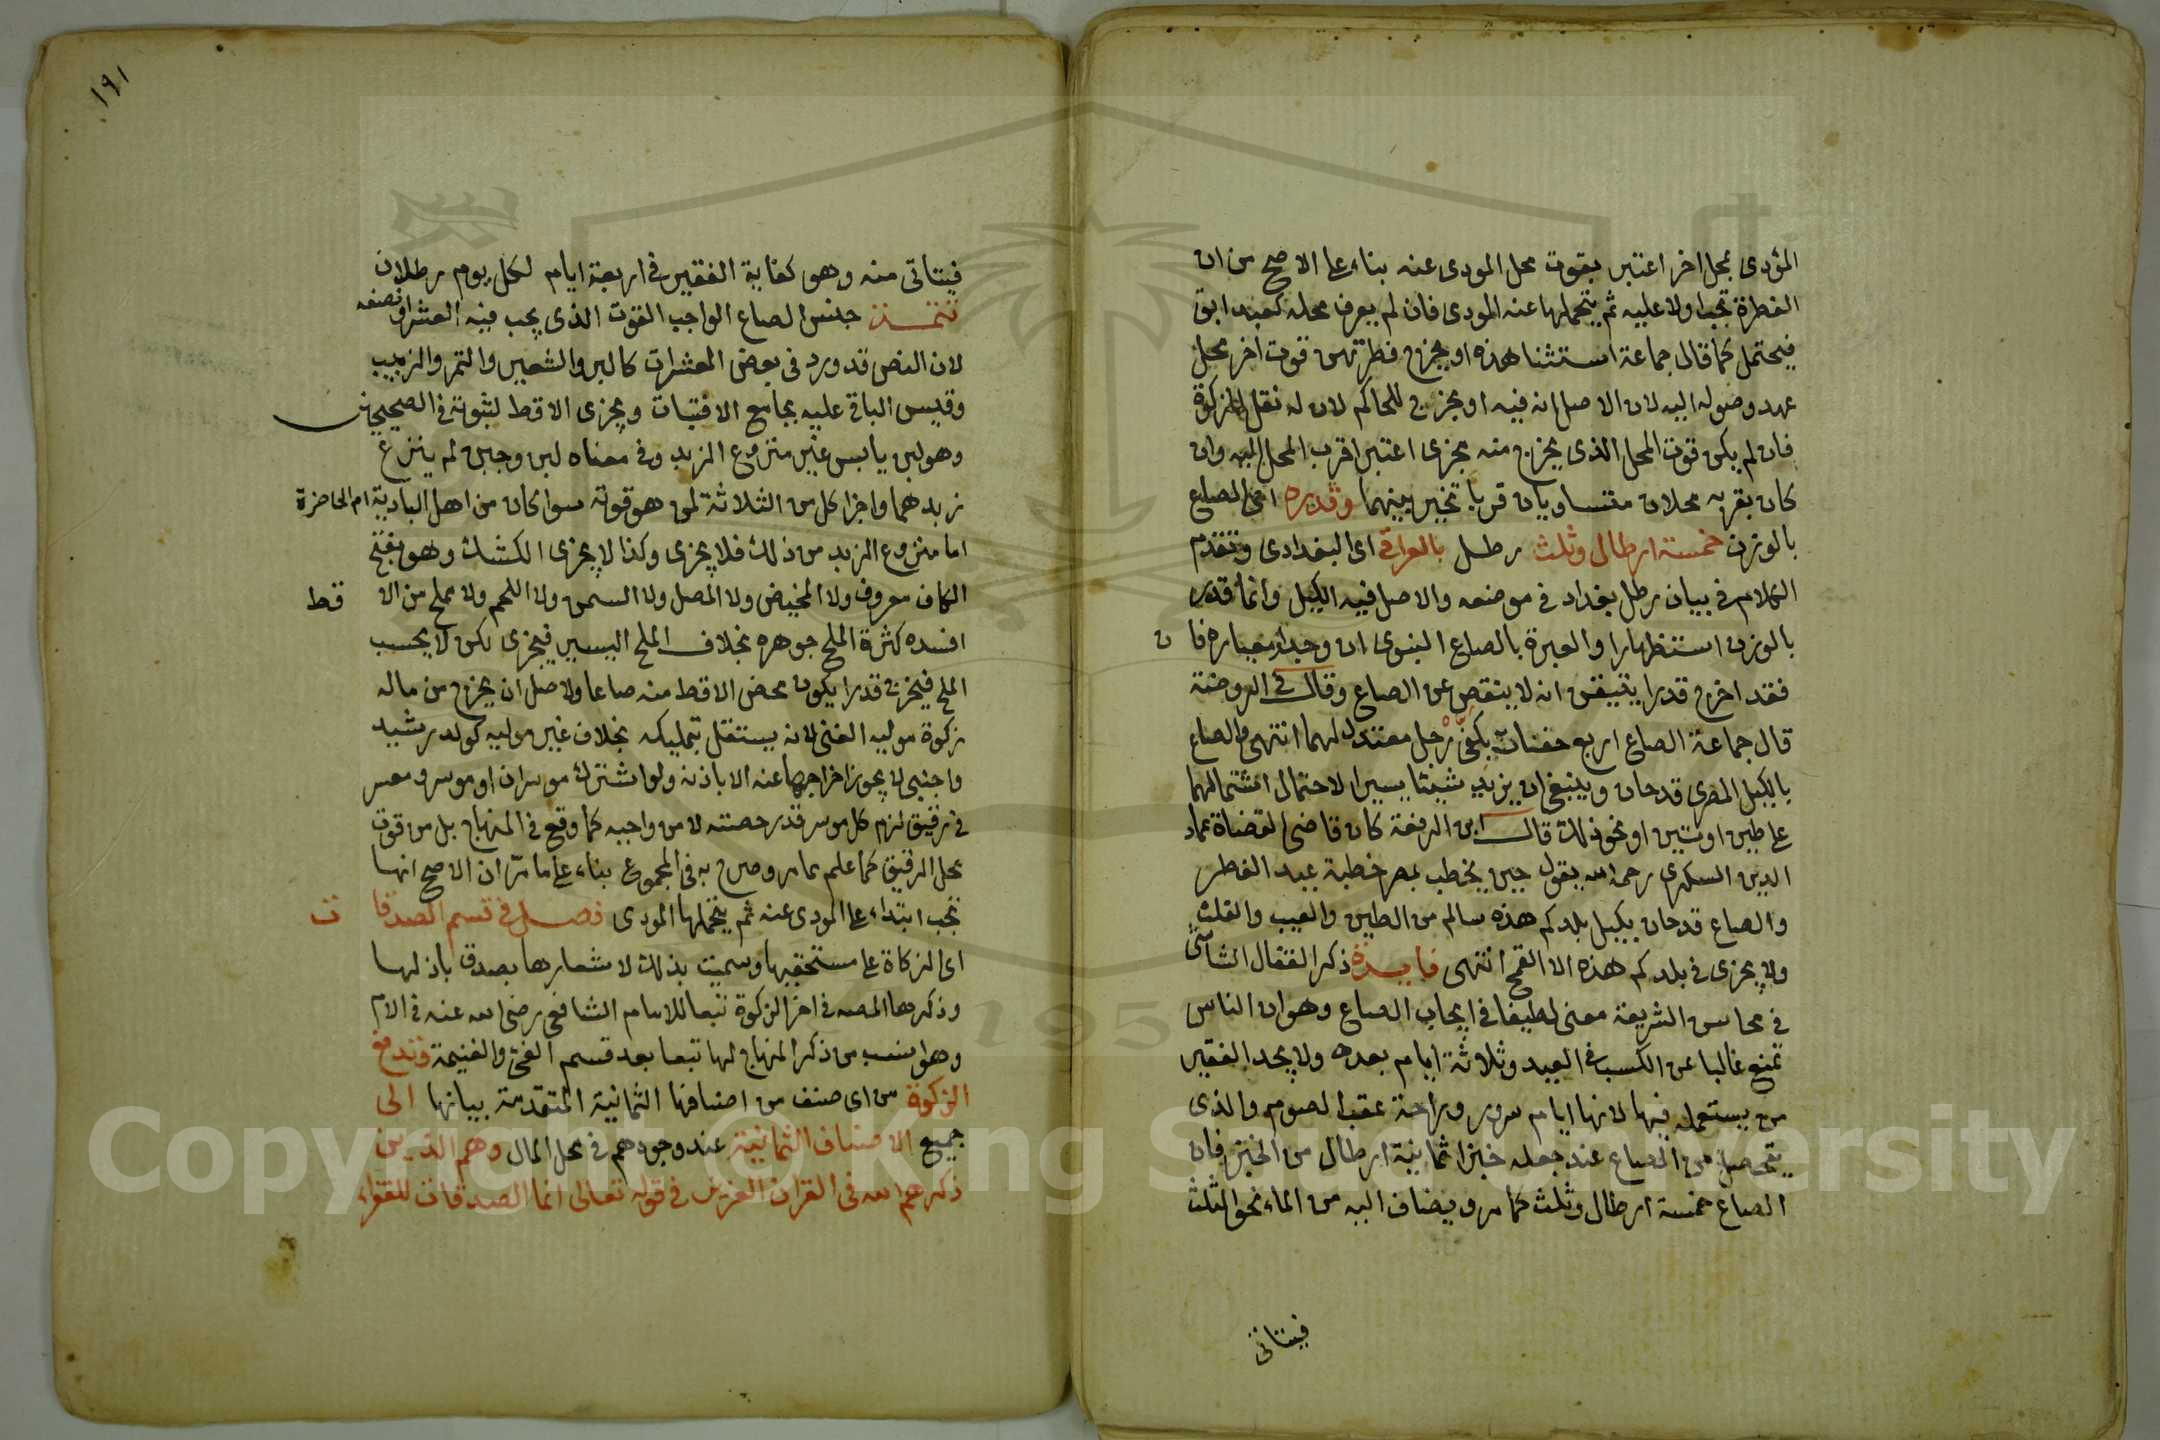 المؤدى بمحل اخر اعتبر بقوت محل المودى عنه بناء على الاصح من ان
الفطرة تجب اولا عليه ثم يتحملها عنه المودى فان لم يعرف محله كعبد ابق
فيحتمل كما قال جماعة استثنا هذه او يخرج فطرته من قوت اخر محل
عهد وصوله اليه لان الاصل انه فيه او يخرج للحاكم لان له نقل الزكوة
فان لم يكن قوت المحل الذى يخرج منه مجزى اعتبر اقرب المحال اليه وان
كان بقربه محلان متساويان قربا تخير بينهما وقدره اى الصاع
بالوزن خمسة ارطال وثلث رطل بالعراقى اى البغدادى وتقدم
الكلام فى بيان رطل بغداد فى موضعه والاصل فيه الكيل وانما قدر
بالوزن استظهارا والعبرة بالصاع النبوى ان وجد او معياره فا ن
فقد اخرج قدرا يتيقن انه لا ينقص عن الصاع وقال فى الروضة
قال جماعة الصاع اربع حفنات بكفى رجل معتدلهما انتهى والصاع
بالكيل المصرى قدحان وينبغى ان يزيد شيئا يسيرا لاحتمال اشتمالهما
على طين او تبن او نحو ذلك قال ابن الرفعة كان قاضى القضاة عماد
الدين السكرى رحمه الله يقول حين يخطب بمصر خطبة عيد الفطر
والصاع قدحان بكيل بلدكم هذه سالم من الطين والعيب والغلت
ولا يجزى فى بلدكم هذه الا القمح انتهى فايدة ذكر القفال الشاشى
فى محاسن الشريعة معنى لطيفا فى ايجاب الصاع وهو ان الناس
تمنع غالبا من الكسب فى العيد وثلاثة ايام بعده ولا يجد الفقير
من يستعمله فيها لانها ايام سرور وراحة عقب الصوم والذى
يتحصل من الصاع عند جعله خبزا ثمانية ارطال من الخبز فان
الصاع خمسة ارطال وثلث كما مر ويضاف اليه من الماء نحو الثلث
فيتاتى
١٩١
فيتاتى منه وهو كفاية الفقير فى اربعة ايام لكل يوم رطلان
تتمة جنس الصاع الواجب القوت الذى يجب فيه العشر او نصفه
لان النص قد ورد فى بعض المعشرات كالبر والشعير والتمر والزبيب
وقيس الباقى عليه بجامع الاقتيات ويجزى الاقط لثبوته فى الصحيحين
وهو لبن يابس غير منزوع الزبد وفى معناه لبن وجبن لم ينزع
زبدهما واجزا كل من الثلاثة لمن هو قوته سوا كان من اهل البادية ام الحاضرة
اما منزوع الزبد من ذلك فلا يجزى وكذا لا يجزى الكشك وهو بفتح
الكاف معروف ولا المخيض ولا المصل ولا السمن ولا اللحم ولا مملح من الا قط
افسده كثرة الملح جوهره بخلاف الملح اليسير فيجزى لكن لا يحسب
الملح فيخرج قدرا يكون محض الاقط منه صاعا ولاصل ان يخرج من ماله
زكوة موليه الغنى لانه يستقل بتمليكه بخلاف غير موليه كولد رشيد
واجنبى لا يجوز اخراجها عنه الا باذنه ولو اشترك موسران او موسر ومعسر
فى رقيق لزم كل موسر قدر حصته لا من واجبه كما وقع فى المنهاج بل من قوت
محل الرقيق كما علم مما مر وصرح به فى المجموع بناء على ما مرّ ان الاصح انها
تجب ابتداء على المودى عنه ثم يتحملها المودى فصل فى قسم الصدقا ت
اى الزكاة على مستحقيها وسميت بذلك لاشعارها بصدق باذلها
وذكرها المصه فى اخر الزكوة تبعا للامام الشافعى رضى الله عنه فى الام
وهو انسب من ذكر المنهاج لها تبعا بعد قسم الفئ والغنيمة وتدفع
الزكوة من اى صنف من اصنافها الثمانية المتقدمة بيانها الى
جميع الاصناف الثمانية عند وجودهم فى محل المال وهم الذين
ذكرهم الله فى القران العزيز فى قوله تعالى انما الصدقات للفقراء
Copyright © King Saud University
195